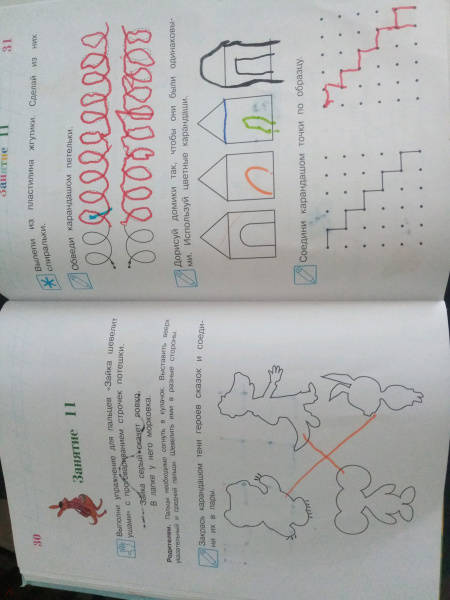 30
Занятие 11
Выполни упражнение для пальцев «Зайка шевелит
ушами» с проговариванием строчек потешки.
Зайка серый скачет ровко,
В лапке у него морковка.
Родителям. Пальцы необходимо согнуть в кулачок. Выставить вверх
указательный и средний пальцы. Шевелить ими в разные стороны.
Закрась карандашом тени героев сказок и соеди-
ни их в пары.
Занятие 11
31
Вылепи из пластилина жгутики. Сделай из них
спиральки.
Обведи карандашом петельки.
Дорисуй домики так, чтобы они были одинаковы-
ми. Используй цветные карандаши.
Соедини карандашом точки по образцу.